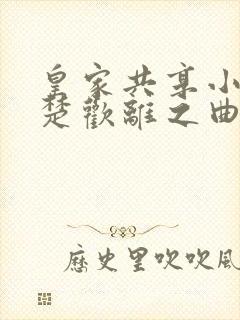 皇家共享小
楚歡離之曲
歷史里吹吹風